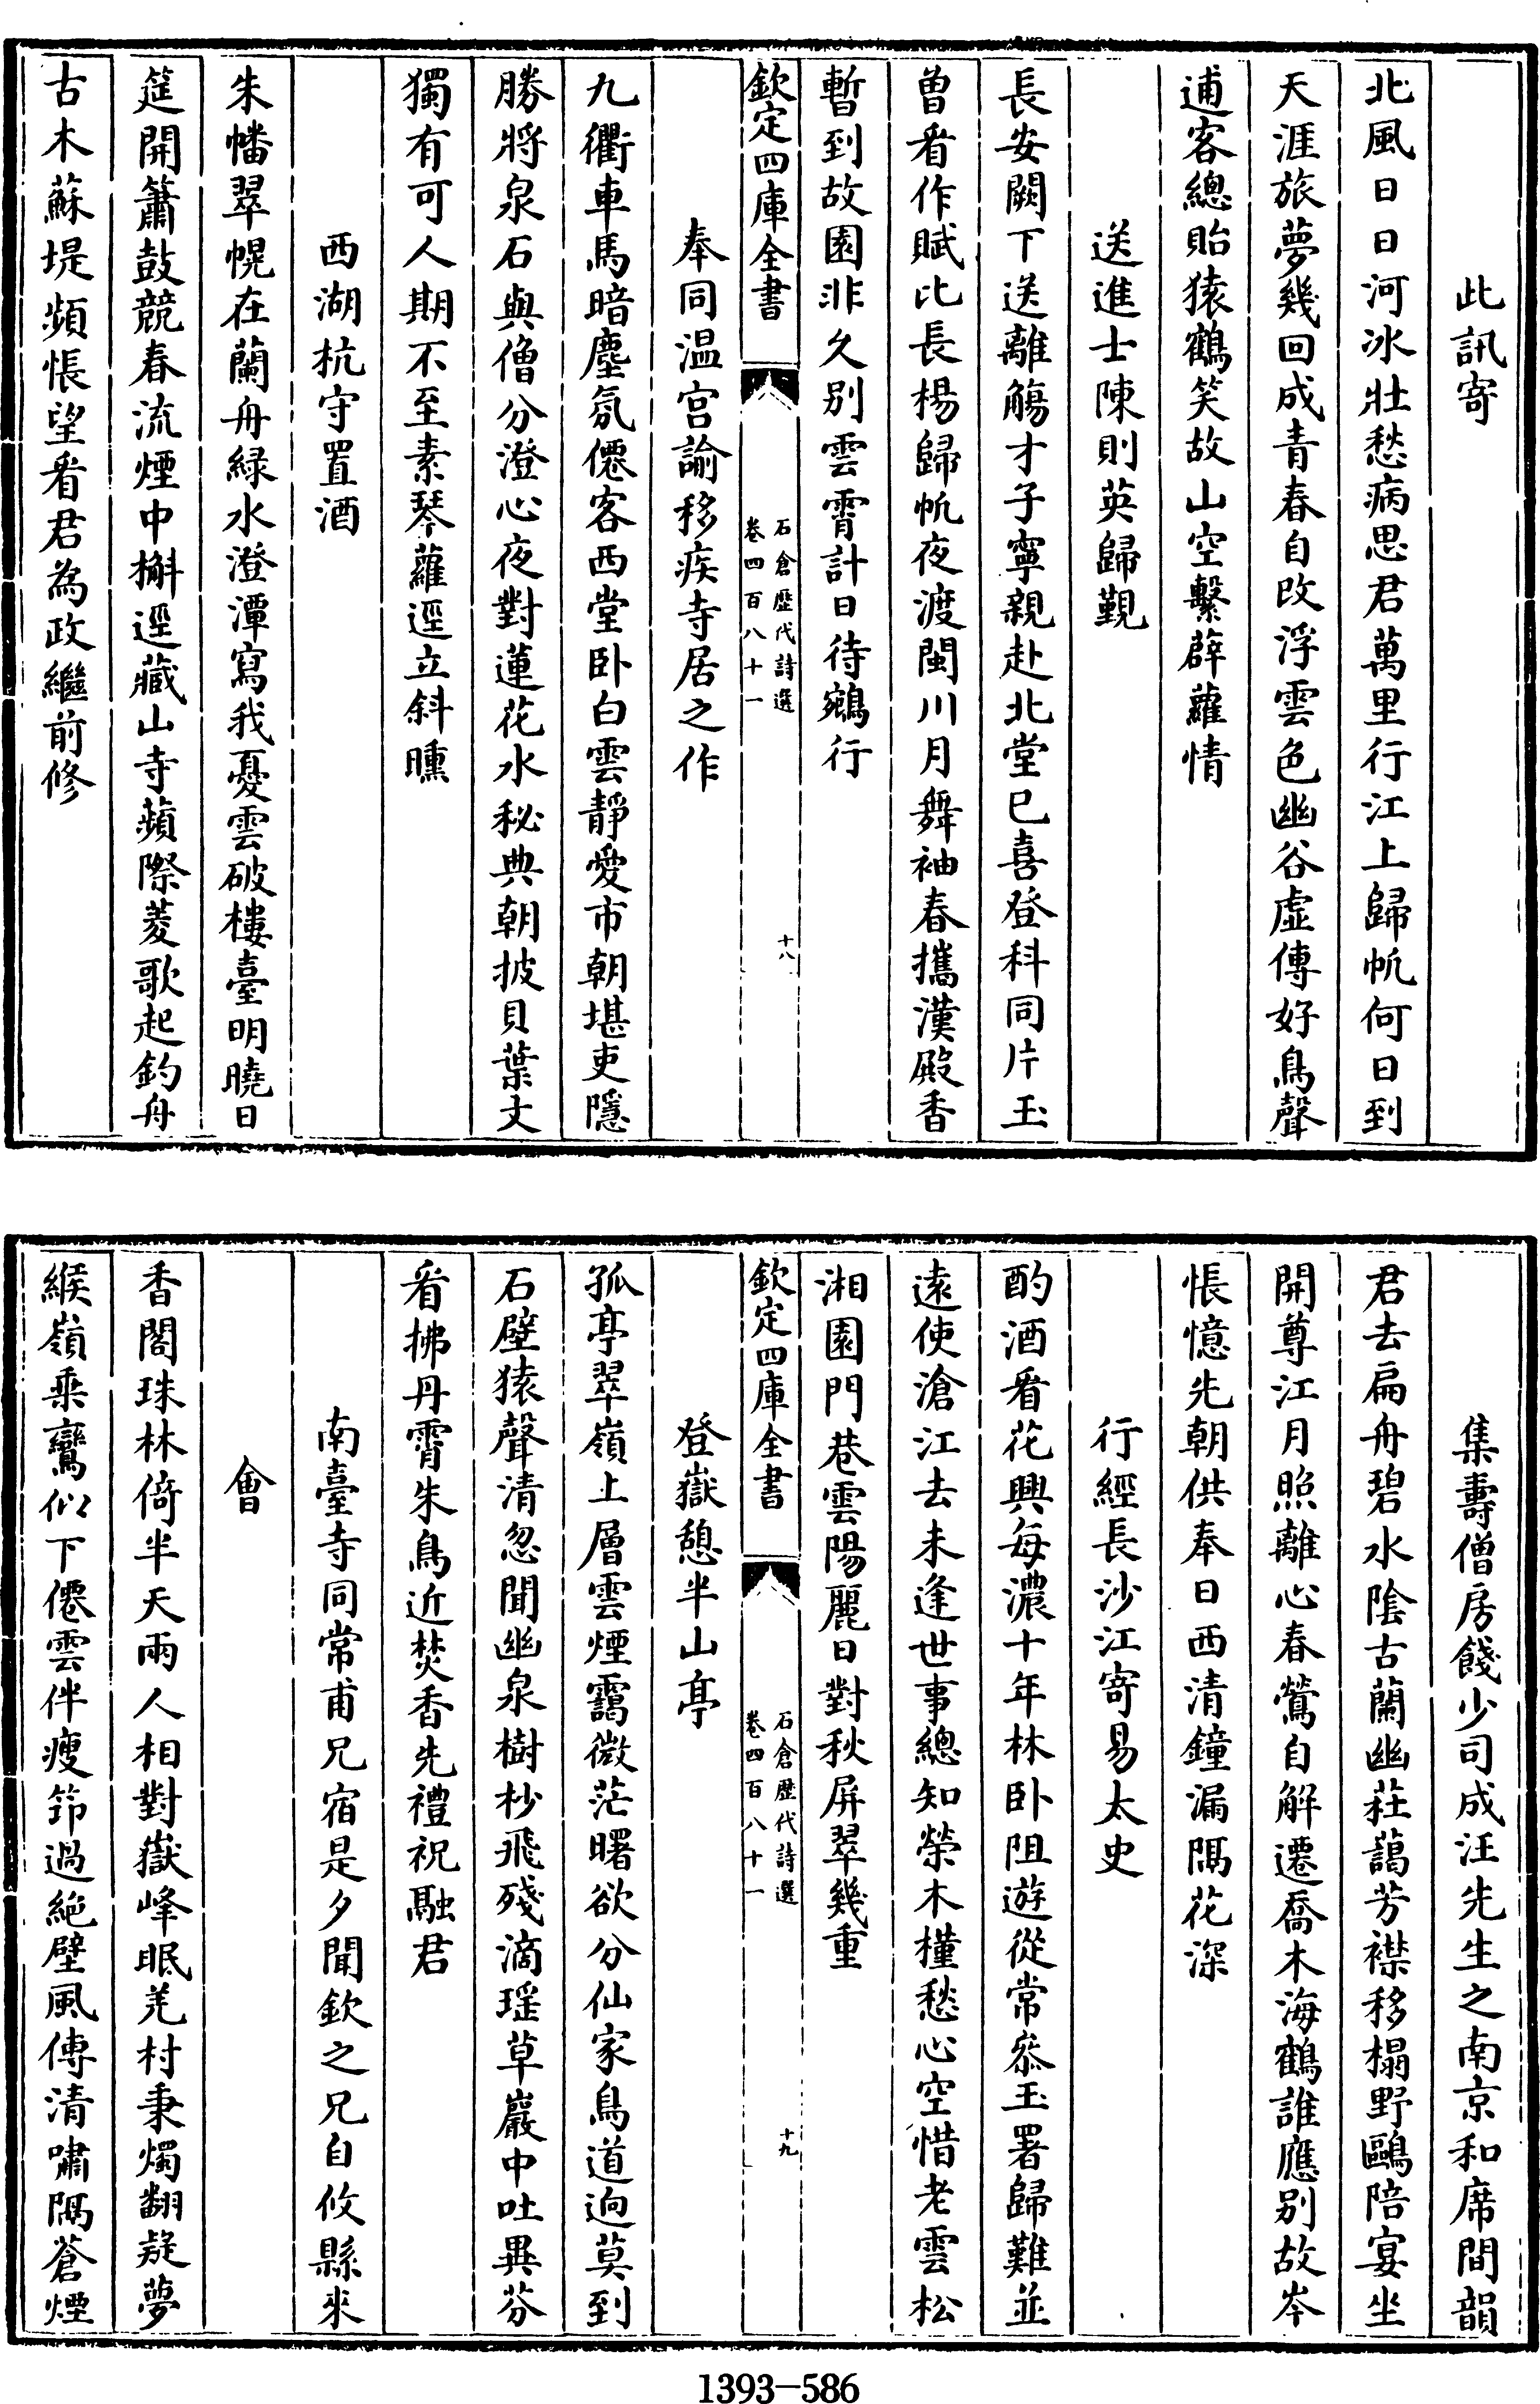 此訊寄
北風日日河冰壯愁病思君萬里行江上歸帆何日到
天涯旅夢幾回成青春自改浮雲色幽谷虛傳好鳥聲
逋客總貽猿鶴笑故山空繫薜蘿情
送進士陳則英歸覲
長安闕下送離觴才子寧親赴北堂已喜登科同片玉
曾看作賦比長楊歸帆夜渡閩川月舞袖春攜漢殿香
暫到故園非久别雲霄計日待鵷行
欽定四庫全書
石倉歷代詩選
卷四百八十一
十八
奉同温宫諭移疾寺居之作
九衢車馬暗塵氛僊客西堂卧白雲靜愛市朝堪吏隱
勝將泉石與僧分澄心夜對蓮花水秘典朝披貝葉文
獨有可人期不至素琴蘿逕立斜曛
西湖杭守置酒
朱幡翠幌在蘭舟緑水澄潭寫我憂雲破樓臺明曉日
筵開簫鼓競春流煙中槲逕藏山寺蘋際菱歌起釣舟
古木蘇堤頻悵望看君為政繼前修
集壽僧房餞少司成汪先生之南京和席間韻
君去扁舟碧水陰古蘭幽茝藹芳襟移榻野鷗陪宴坐
開尊江月照離心春鶯自解遷喬木海鶴誰應别故岑
悵憶先朝供奉日西清鐘漏隔花深
行經長沙江寄易太史
酌酒看花興每濃十年林卧阻遊從常叅玉署歸難並
遠使滄江去未逢世事總知榮木槿愁心空惜老雲松
湘園門巷雲陽麗日對秋屏翠幾重
欽定四庫全書
石倉歷代詩選
卷四百八十一
十九
登嶽憩半山亭
孤亭翠嶺上層雲煙靄微茫曙欲分仙家鳥道迥莫到
石壁猿聲清忽聞幽泉樹杪飛殘滴瑶草巖中吐異芬
看拂丹霄朱鳥近焚香先禮祝融君
南臺寺同常甫兄宿是夕聞欽之兄自攸縣來
會
香閣珠林倚半天兩人相對嶽峰眠羌村秉燭翻疑夢
緱嶺乘鸞似下僊雲伴瘦筇過絶壁風傳清嘯隔蒼煙
1393-586